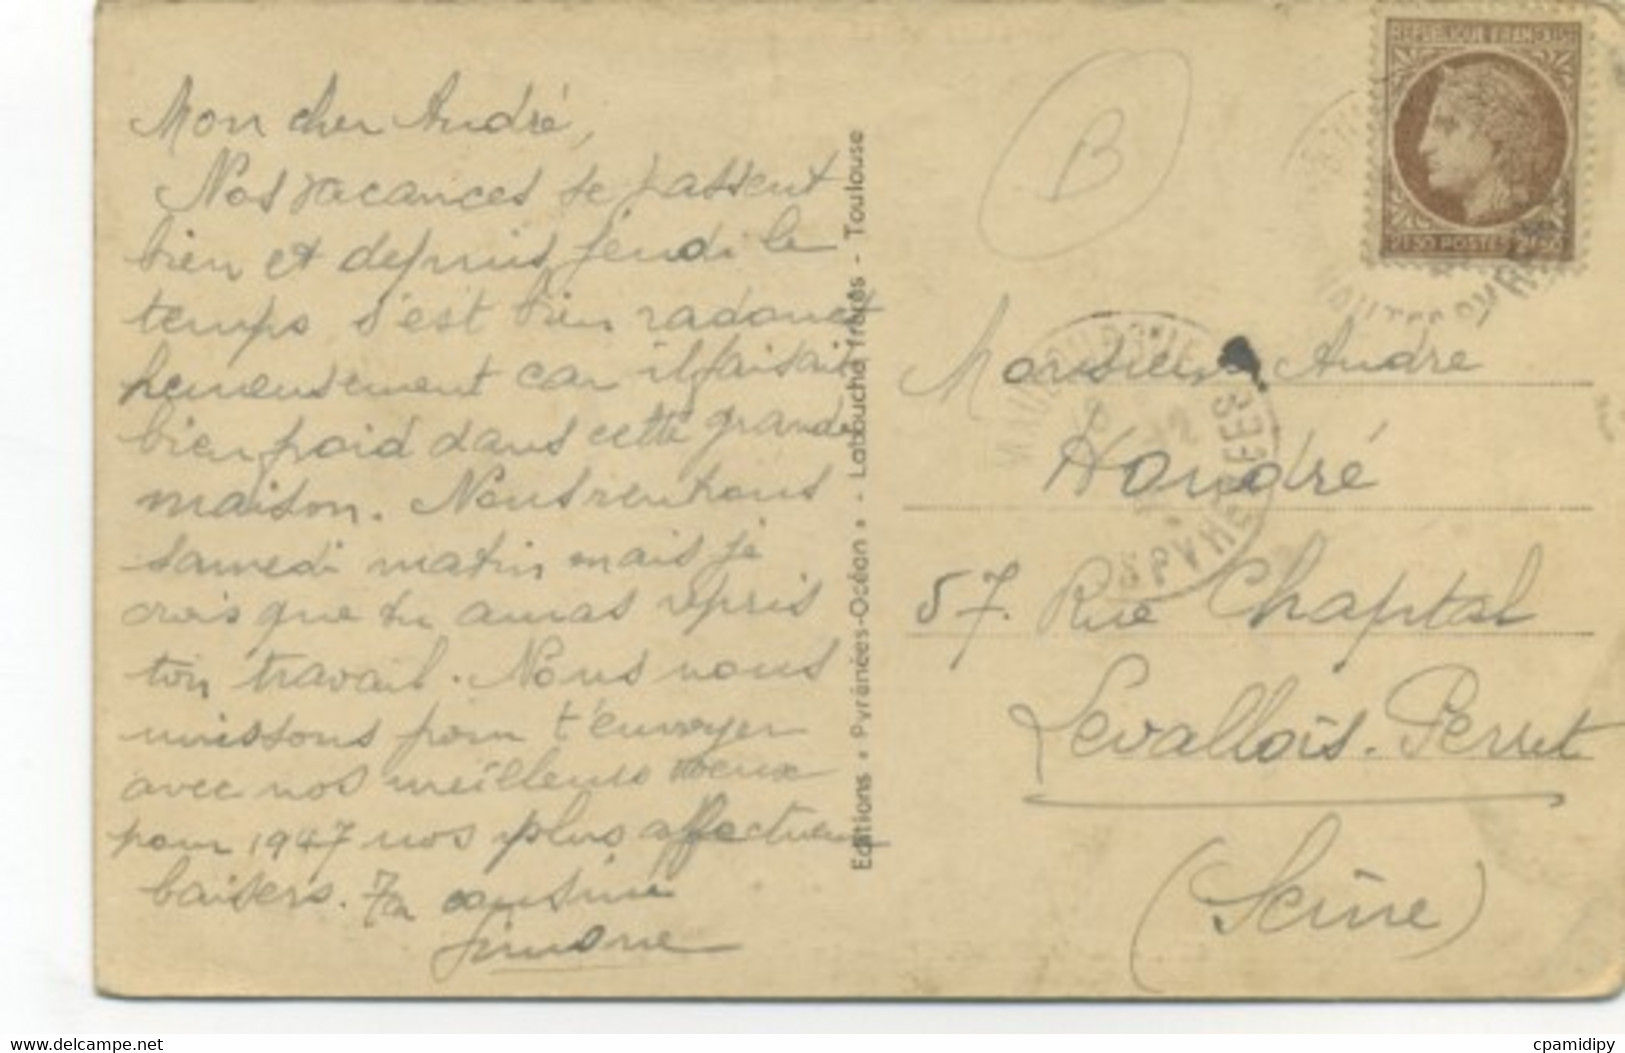 Mon cher André,
Nos vacances se passent
bien et depuis jeudi le
temps s'est bien radouci
heureusement car il faisait
bien froid dans cette grande
maison. Nous rentrons
samedi matin mais je
crois que tu auras repris
ton travail. Nous nous
unissons pour t'envoyer
avec nos meilleurs vœux
pour 1947 nos plus affectueux
baisers. Ta cousine
Simone
Editions « Pyrénées-Océan » - Labouche frères - Toulouse
B
REPUBLIQUE FRANÇAISE
2F50 POSTES 2F50
Monsieur André
Houdré
57. Rue Chaptal
Levallois-Perret
(Seine)
www.delcampe.net
cpamidipy